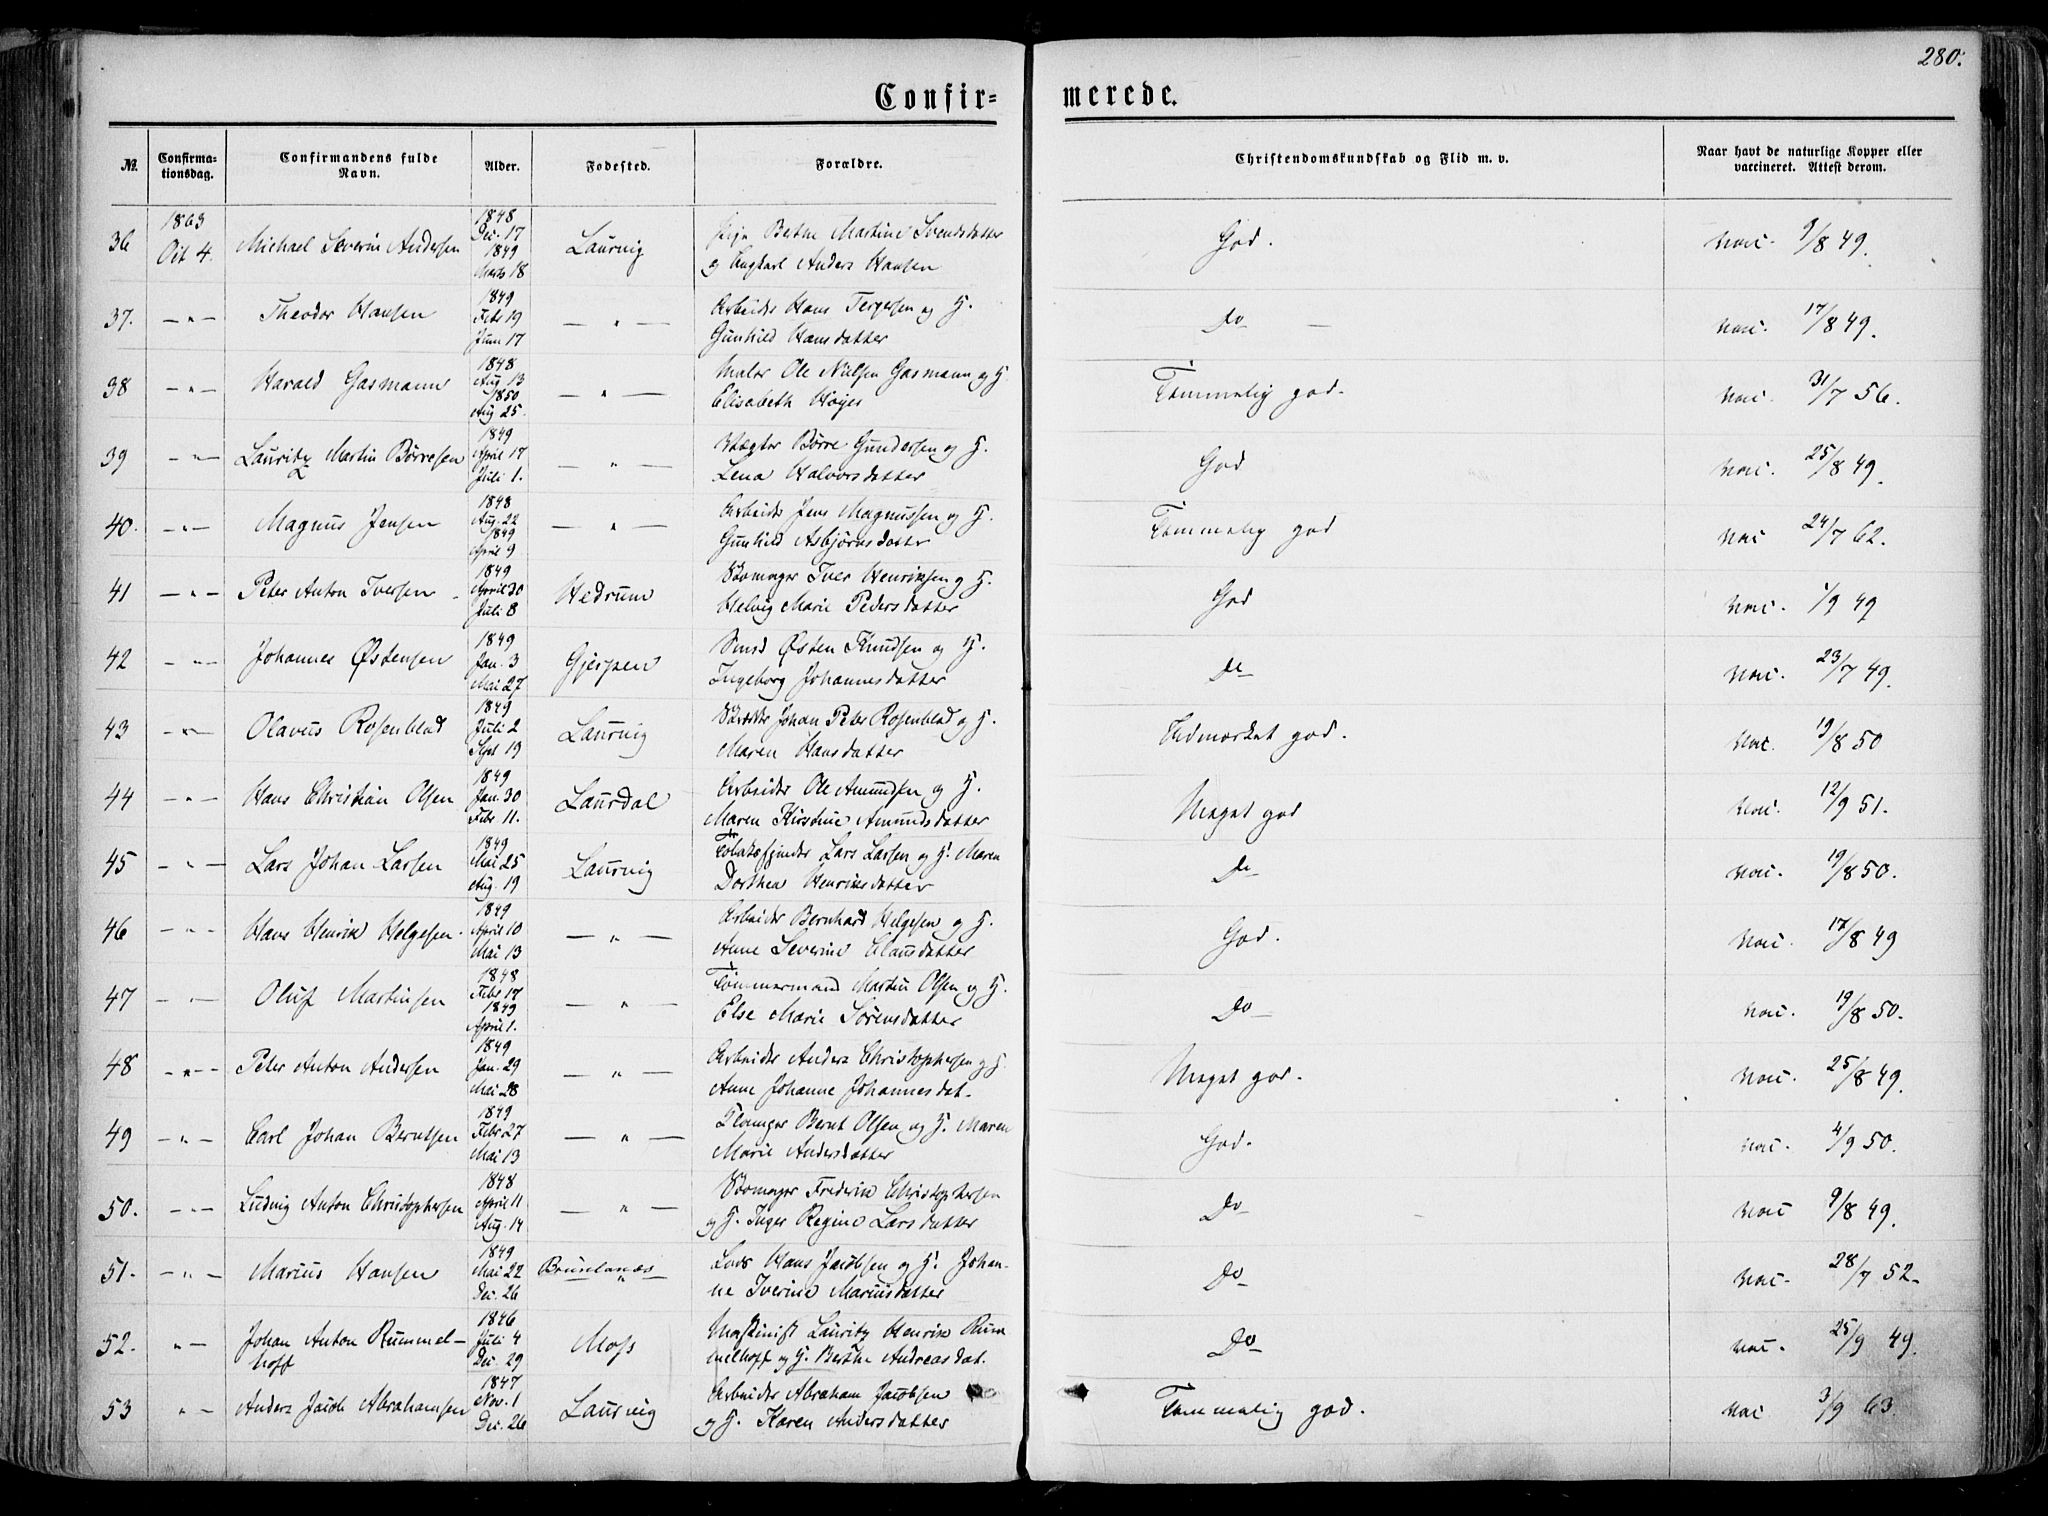 280.
Confir=
merede.
№
Confirma-
tionsdag.
Confirmandens fulde
Navn.
Alder.
Fødested.
Forældre.
Christendomskundskab og Flid m. v.
Naar havt de naturlige Kopper eller
vaccineret. Attest derom.
36 1863 Oct 4. Michael Severin Andersen 1848 Dec. 17 1849 Marts 18 Laurvig Pige Bethe Martine Svendsdatter
og Ungkarl Anders Hansen God. vac. 9/8 49.
37. —"— Theodor Hansen 1849 Febr 19 Juni 17 —"— Arbeider Hans Tergersen og H.
Gunhild Hansdatter Do — vac. 17/8 49.
38 —"— Harald Gasmann 1848 Aug 13 1850 Aug 25. —"— Maler Ole Nielsen Gasmann og H
Elisabeth Høyer Temmelig god. vac. 31/7 56.
39 —"— Lauritz Martin Børresen 1849 April 17 Juli 1. —"— Vægter Børre Gundersen og H.
Lena Halvorsdatter God vac. 25/8 49.
40. —"— Magnus Jensen 1848 Aug. 22 1849 April 9 —"— Arbeider Jens Magnussen og H.
Gunhild Asbjørnsdatter Temmelig god vac 24/7 62.
41 —"— Peter Anton Iversen 1849 April 30 Juli 8 Hedrum Skomager Iver Henriksen og H.
Helvig Marie Pedersdatter God vac. 1/9 49
42 —"— Johannes Østensen 1849 Jan. 3 Mai 27 Gjerpen Smed Østen Knudsen og H.
Ingeborg Johannesdatter Do vac. 23/7 49.
43 —"— Olavus Rosenblad 1849 Juli 2 Sept 19 Laurvig Johan Peter Rosenblad og H.
Maren Hansdatter Udmærket god. vac. 19/8 50
44 —"— Hans Christian Olsen 1849 Jan. 30 Febr 11. Laurdal Arbeider Ole Amundsen og H.
Maren Kirstine Amundsdatter Meget god vac. 12/9 51.
45 —"— Lars Johan Larsen 1849 Mai 25 Aug. 19 Laurvig Tobaksspinder Lars Larsen og H. Maren
Dorthea Henriksdatter Do vac. 19/8 50.
46 —"— Hans Henrik Helgesen. 1849 April 10 Mai 13 —"— Arbeider Bernhard Helgesen og H.
Anne Severine Clausdatter God. vac. 17/8 49
47 —"— Oluf Martinsen 1848 Febr 17 1849 April 1. —"— Tømmermand Martin Olsen og H.
Else Marie Sørensdatter Do vac. 19/8 50.
48 —"— Peter Anton Andersen 1849 Jan. 29 Mai 28 —"— Arbeider Anders Christophersen og H.
Anne Johanne Johannesdat. Meget god. vac. 25/8 49.
49 —"— Carl Johan Berntsen 1849 Febr 27 Mai 13 —"— Bernt Olsen og H. Maren
Marie Andersdatter God. vac. 4/9 50.
50. —"— Ludvig Anton Christophersen 1848 April 11 Aug. 14 —"— Skomager Frederik Christophersen
og H. Inger Regine Larsdatter Do vac 9/8 49.
51. —"— Marius Hansen 1849 Mai 22 Dec. 26 Brunlanæs Lods Hans Jacobsen og H. Johan-
ne Iverine Mariusdatter Do vac. 28/7 52.
52. "— Johan Anton Rummel-
hoff 1846 Juli 4 Dec. 29 Moss Maskinist Lauritz Henrik Rum
melhoff og H. Berthe Andreasdat. Do vac. 25/9 49.
53 "— Anders Jacob Abrahamsen 1847 Nov. 1 Dec. 26 Laurvig Arbeider Abraham Jacobsen
og H. Karen Andersdatter Temmelig god. vac 3/9 63.